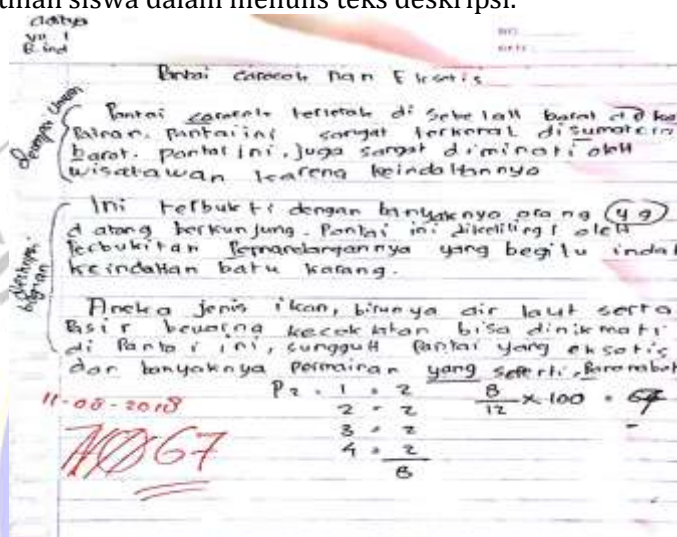 siswa dalam menulis teks deskripsi.
aditya
VII 1
B. ind
NO
DATE
Pantai carocok nan Eksotis
Pantai carocok terletak di sebelah barat
Painan. Pantai ini sangat terkenal disumatera
barat. pantai ini, juga sangat diminati oleh
wisatawan karena keindahannya
Ini terbukti dengan banyaknya orang (yg)
datang berkunjung. Pantai ini dikelilingi oleh
Perbukitan Pemandangannya yang begitu indah
keindahan batu karang.
bagian
Aneka jenis ikan, birunya air laut serta
Pasir bewarna kecoklatan bisa dinikmati
di Pantai ini, sungguh Pantai yang eksotis
dan banyaknya permainan yang seperti,
11-08-2018
67
P2 . 1 = 2
2 = 2
3 = 2
4 = 2
8
8/12 x 100 = 67